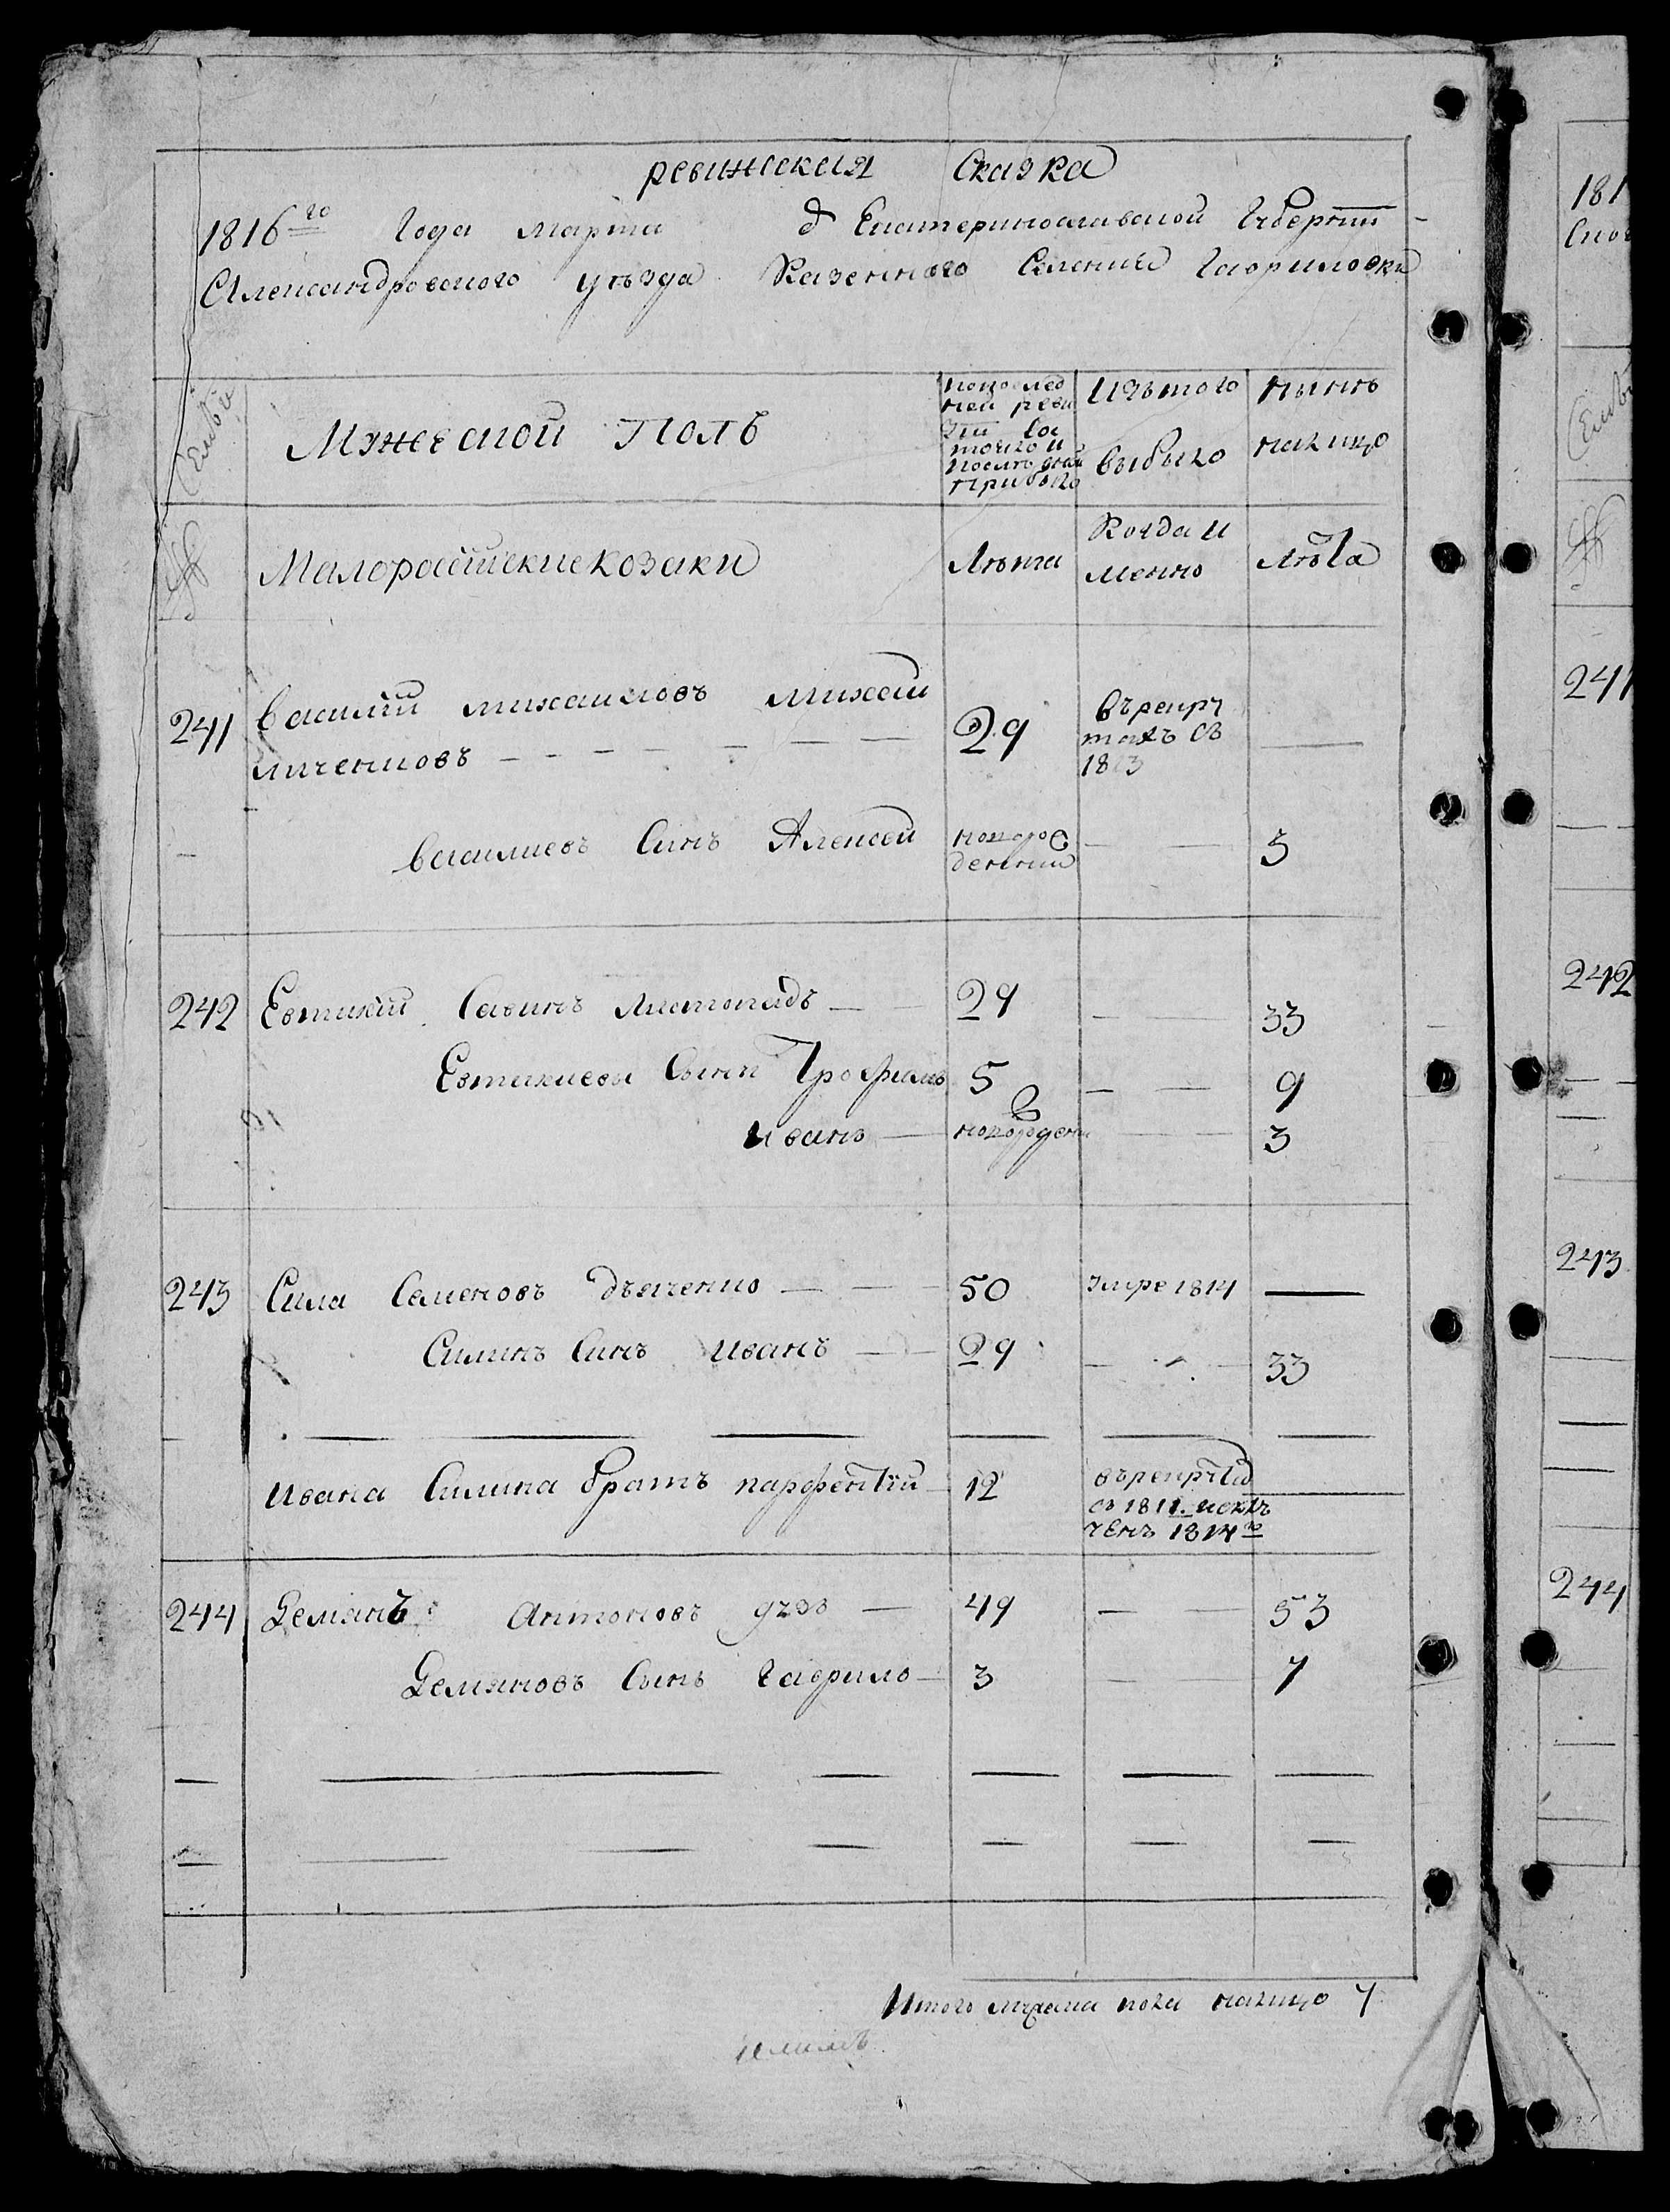 ревижская Сказка
1816го Года марта д Екатеринославской Губернии
Александровского уѣзда Казенного Селения Гаориловки
Семьи
Мужеской Полъ
попослед
ней реви
зїи Со
тояло и
послѣ оной
прибыло
Изътого
выбыло
нынѣ
налицо
№
Малоросийские козаки
Лѣта
Когда и
менно
Лѣта
241
Василий михаиловъ михай
личенковъ
29
въ рекру
тахъ съ
1813
Василиевъ Синъ Алексей
новорож
денний
3
242
Евтихий Савинъ Листопадъ
29
33
Евтихиевы Сыни Трофимъ
5
9
Иванъ
новорожден
3
243
Сила Семеновъ дьяченко
50
умре 1814
Силинъ Синъ Иванъ
29
33
Ивана Силина братъ парфентий
12
въ рекрутах
съ 1811
1814го
244
Демянъ Антоновъ
49
53
Демяновъ Сынъ Гаврило
3
7
Итого мужеска пола налицо 7
181
241
242
243
244